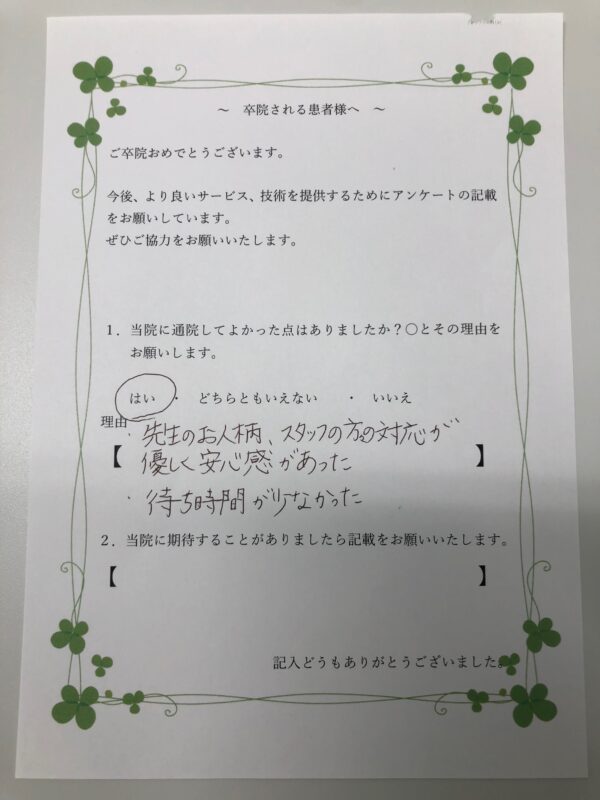 ～　卒院される患者様へ　～
ご卒院おめでとうございます。
今後、より良いサービス、技術を提供するためにアンケートの記載
をお願いしています。
ぜひご協力をお願いいたします。
１．当院に通院してよかった点はありましたか？〇とその理由を
お願いします。
はい　・　どちらともいえない　・　いいえ
理由
【・先生のお人柄、スタッフの方の対応が
優しく安心感があった】
・待ち時間が少なかった
２．当院に期待することがありましたら記載をお願いいたします。
【　】
記入どうもありがとうございました。